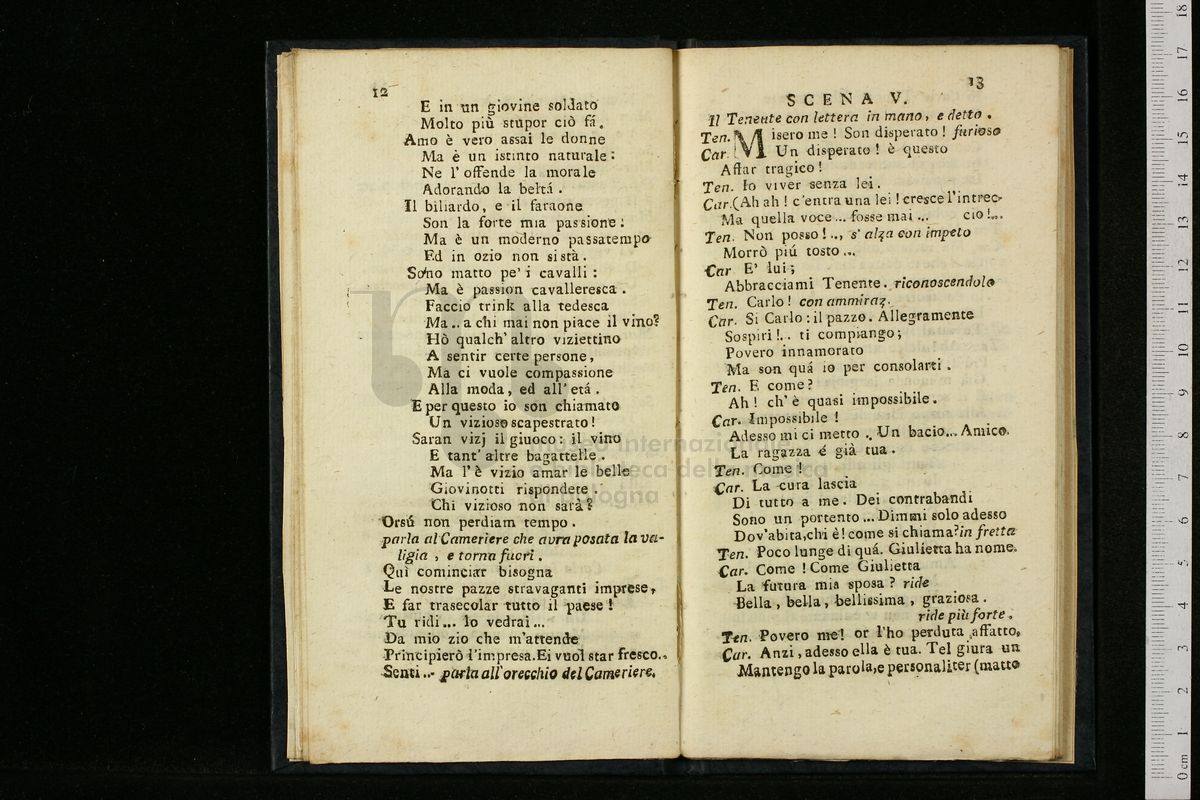 12
E in un giovine soldato
Molto più stupor ciò fá.
Amo è vero assai le donne
Ma è un istinto naturale:
Ne l' offende la morale
Adorando la beltá.
Il biliardo, e il faraone
Son la forte mia passione:
Ma è un moderno passatempo
Ed in ozio non si stà.
Sono matto pe' i cavalli:
Ma è passion cavalleresca.
Faccio trink alla tedesca
Ma.. a chi mai non piace il vino?
Hò qualch' altro viziettino
A sentir certe persone,
Ma ci vuole compassione
Alla moda, ed all' etá.
E per questo io son chiamato
Un vizioso scapestrato!
Saran vizj il giuoco: il vino
E tant' altre bagattelle.
Ma l' è vizio amar le belle
Giovinotti rispondete.
Chi vizioso non sarà?
Orsú non perdiam tempo.
parla al Cameriere che avra posata la va-
ligia, e torna fuori.
Quì cominciar bisogna
Le nostre pazze stravaganti imprese,
E far trasecolar tutto il paese!
Tu ridi... lo vedrai...
Da mio zio che m'attende
Principierò l'impresa. Ei vuol star fresco..
Senti... parla all' orecchio del Cameriere.
13
SCENA V.
Il Tenente con lettera in mano, e detto.
Ten. Misero me! Son disperato! furioso
Car. Un disperato! è questo
Affar tragico!
Ten. Io viver senza lei.
Car. (Ah ah! c'entra una lei! cresce l'intrec-
Ma quella voce... fosse mai... cio!...
Ten. Non posso!.., s' alza con impeto
Morrò piú tosto...
Car E' lui;
Abbracciami Tenente. riconoscendolo
Ten. Carlo! con ammiraz.
Car. Si Carlo: il pazzo. Allegramente
Sospiri!.. ti compiango;
Povero innamorato
Ma son quá io per consolarti.
Ten. E come?
Ah! ch' è quasi impossibile.
Car. Impossibile!
Adesso mi ci metto.. Un bacio... Amico.
La ragazza é già tua.
Ten. Come!
Car. La cura lascia
Di tutto a me. Dei contrabandi
Sono un portento... Dimmi solo adesso
Dov'abita, chi è! come si chiama? in fretta
Ten. Poco lunge di quá. Giulietta ha nome.
Car. Come! Come Giulietta
La futura mia sposa? ride
Bella, bella, bellissima, graziosa.
ride più forte.
Ten. Povero me! or l'ho perduta affatto.
Car. Anzi, adesso ella è tua. Tel giura un
Mantengo la parola, e personaliter (matto
museo internazionale
e biblioteca della musica
di bologna
0 cm 1 2 3 4 5 6 7 8 9 10 11 12 13 14 15 16 17 18